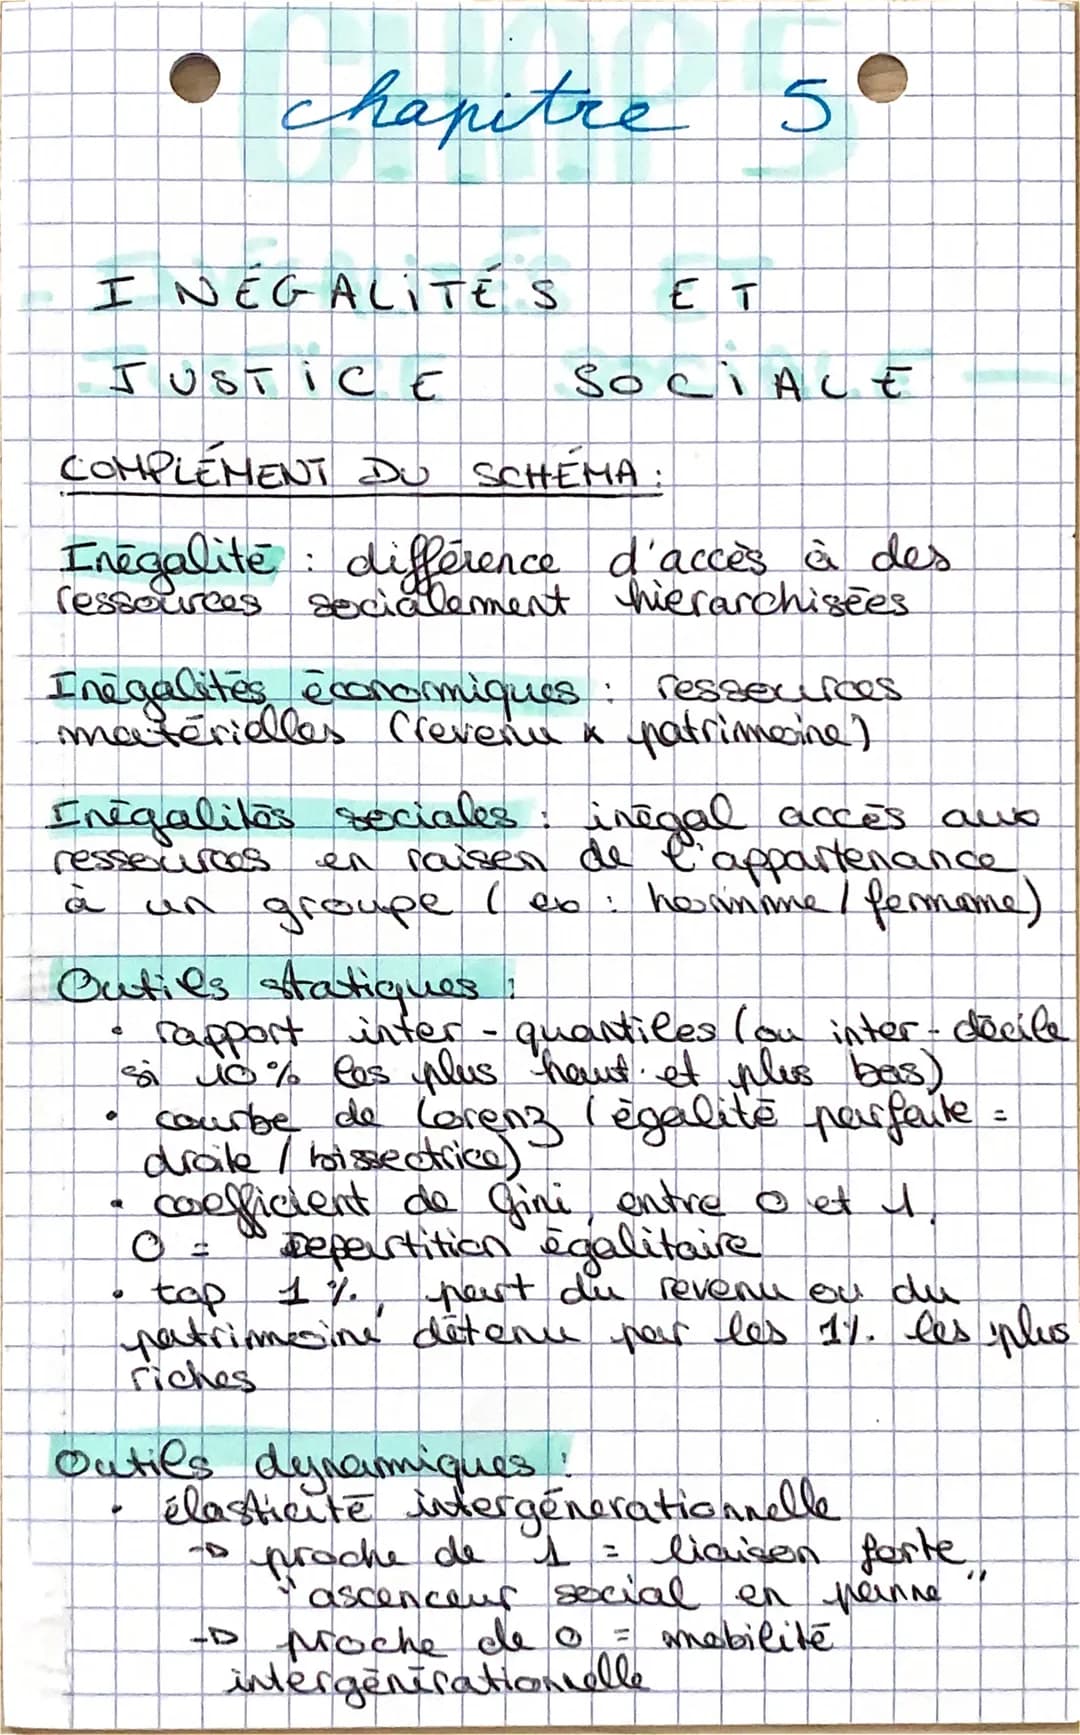 chapitre 5
INÉGALITÉS ET
JUSTICE SOCIALE
COMPLÉMENT DU SCHÉMA :
Inégalité : différence d'accès à des
ressources socialement hiérarchisées
Inégalités économiques : ressources
matérielles (revenu x patrimoine)
Inégalités sociales : inégal accès aux
ressources en raison de l'appartenance
à un groupe (ex : homme / femme)
Outils statiques :
• rapport inter-quantiles (ou inter-décile
si 10% les plus haut et plus bas)
• courbe de Lorenz (égalité parfaite =
droite / bissectrice)
• coefficient de Gini, entre 0 et 1,
0 = repartition égalitaire
• top 1%, part du revenu ou du
patrimoine détenu par les 1% les plus
riches
Outils dynamiques :
• élasticité intergénerationnelle
→ proche de 1 = liaison forte,
"ascenceur social en panne"
→ proche de 0 = mobilité
intergénérationnelle